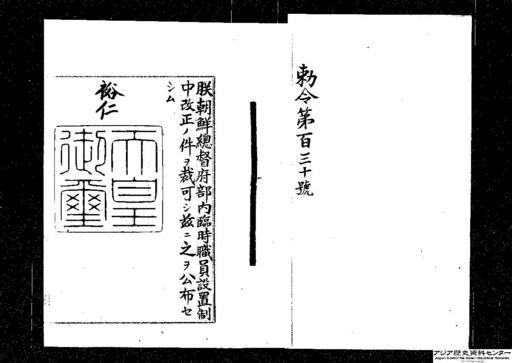 勅令第百三十號
朕朝鮮總督府部内臨時職員設置制
中改正ノ件ヲ裁可シ玆ニ之ヲ公布セ
シム
裕仁
天皇
御璽
アジア歴史資料センター
Japan Center for Asian Historical Records